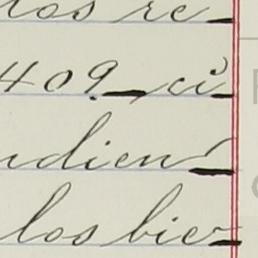 los re
409 ci
udien
los bie